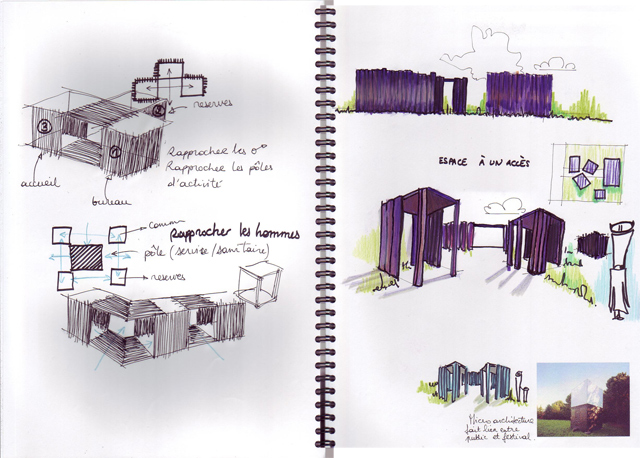 reserves
③
②
①
Rapprocher les
Rapprocher les pôles
d'activité
accueil
bureau
rapprocher les hommes
pôle (service/sanitaire)
reserves
ESPACE À UN ACCÈS
Micro architecture
fait lien entre
public et festival.